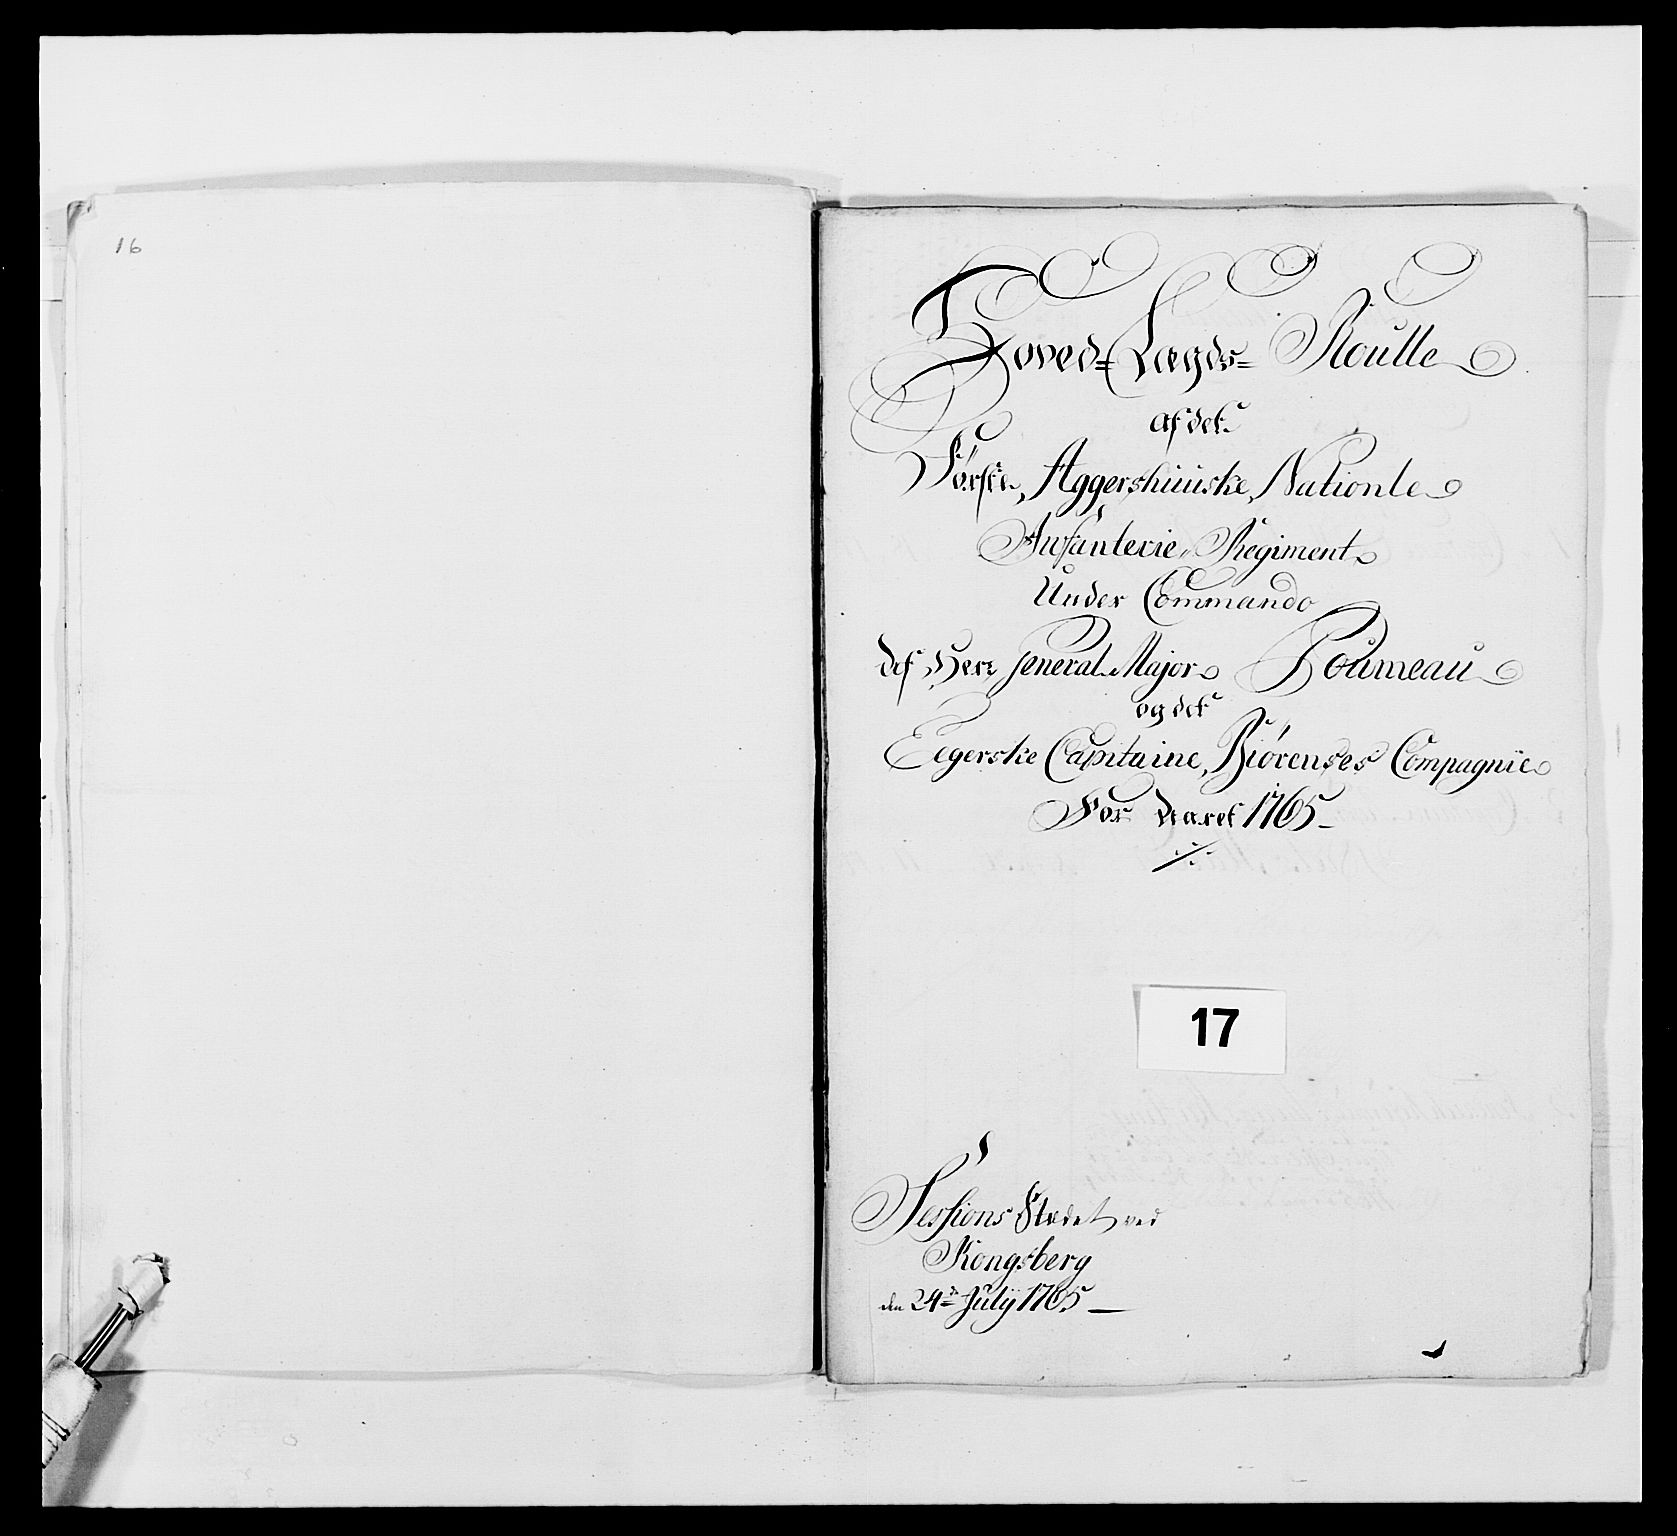 16
Hoved-Lægds-Roulle
af det
Første, Aggershuuske, Nationle
Infanterie, Regiment
Under Commando
des Herr General Major Poumeau
og det
Eegerske Capitaine, Biørenses Compagnie
For Aaret 1765
17
Sessions Stædet ved
Kongsberg
den 24de July 1765